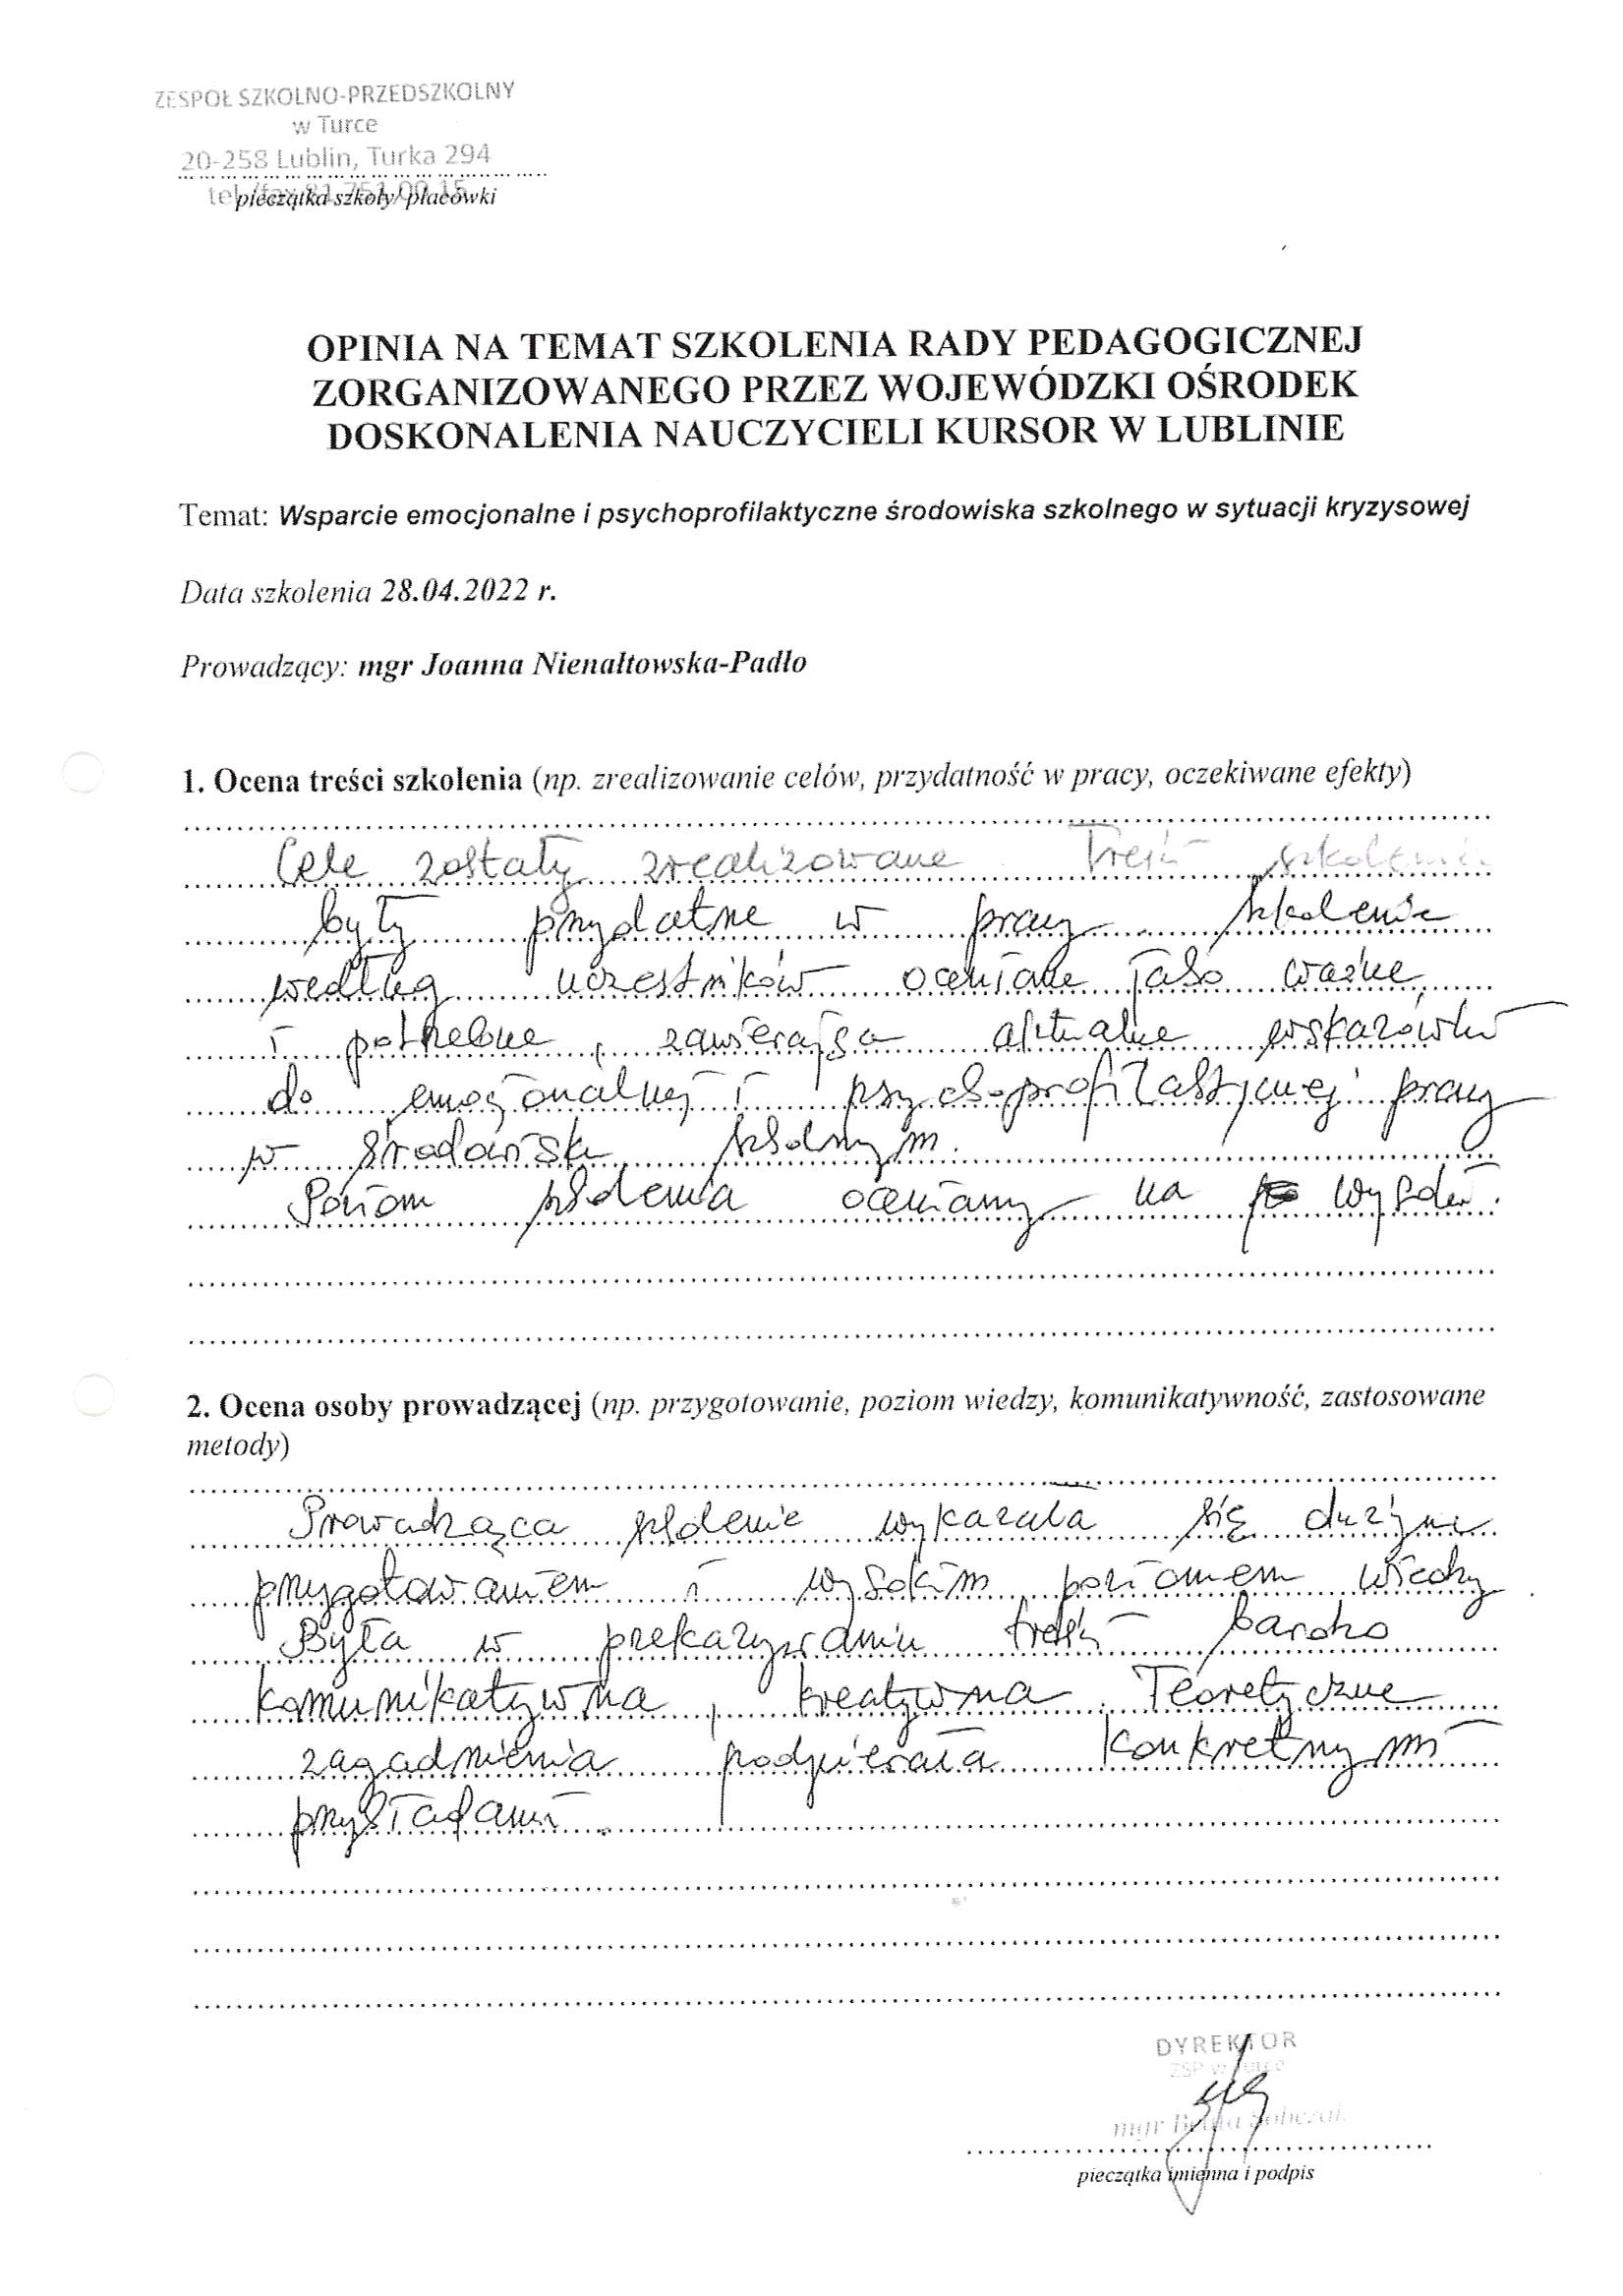 ZESPÓŁ SZKOLNO-PRZEDSZKOLNY
w Turce
20-258 Lublin, Turka 294
tel./fax 81 751 00 15
pieczątka szkoły/ placówki
OPINIA NA TEMAT SZKOLENIA RADY PEDAGOGICZNEJ
ZORGANIZOWANEGO PRZEZ WOJEWÓDZKI OŚRODEK
DOSKONALENIA NAUCZYCIELI KURSOR W LUBLINIE
Temat: Wsparcie emocjonalne i psychoprofilaktyczne środowiska szkolnego w sytuacji kryzysowej
Data szkolenia 28.04.2022 r.
Prowadzący: mgr Joanna Nienałtowska-Padło
1. Ocena treści szkolenia (np. zrealizowanie celów, przydatność w pracy, oczekiwane efekty)
Cele zostały zrealizowane. Treści szkolenia
były przydatne w pracy. Szkolenie
według uczestników oceniane jako ważne
i potrzebne, zawierająca aktualne wskazówki
do emocjonalnej i psychoprofilaktycznej pracy
w środowisku szkolnym.
Poziom szkolenia oceniamy na wysoki.
2. Ocena osoby prowadzącej (np. przygotowanie, poziom wiedzy, komunikatywność, zastosowane
metody)
Prowadząca szkolenie wykazała się dużym
przygotowaniem i wysokim poziomem wiedzy.
Była w przekazywaniu treści bardzo
komunikatywna, kreatywna. Teoretyczne
zagadnienia podpierała konkretnymi
przykładami.
DYREKTOR
ZSP w Turce
mgr Sobczak
pieczątka imienna i podpis